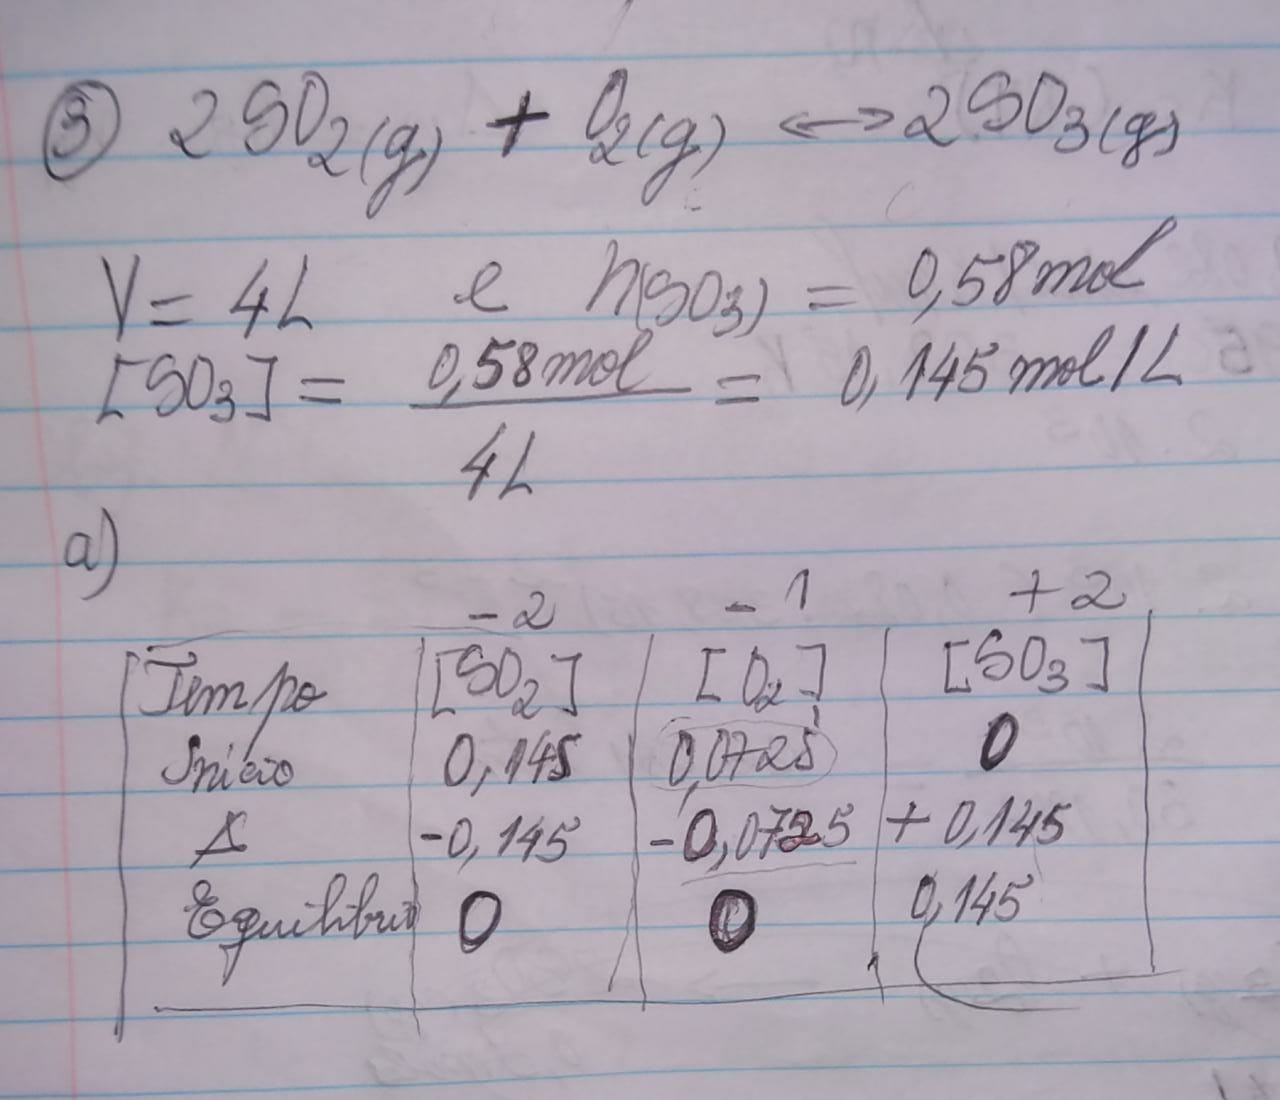 ③ 2SO2(g) + O2(g) ⟷ 2SO3(g)
V = 4L e n(SO3) = 0,58mol
[SO3] = 0,58mol / 4L = 0,145mol/L
a)
-2 -1 +2
Tempo [SO2] [O2] [SO3]
Início 0,145 0,0725 0
Δ -0,145 -0,0725 +0,145
Equilíbrio 0 0 0,145